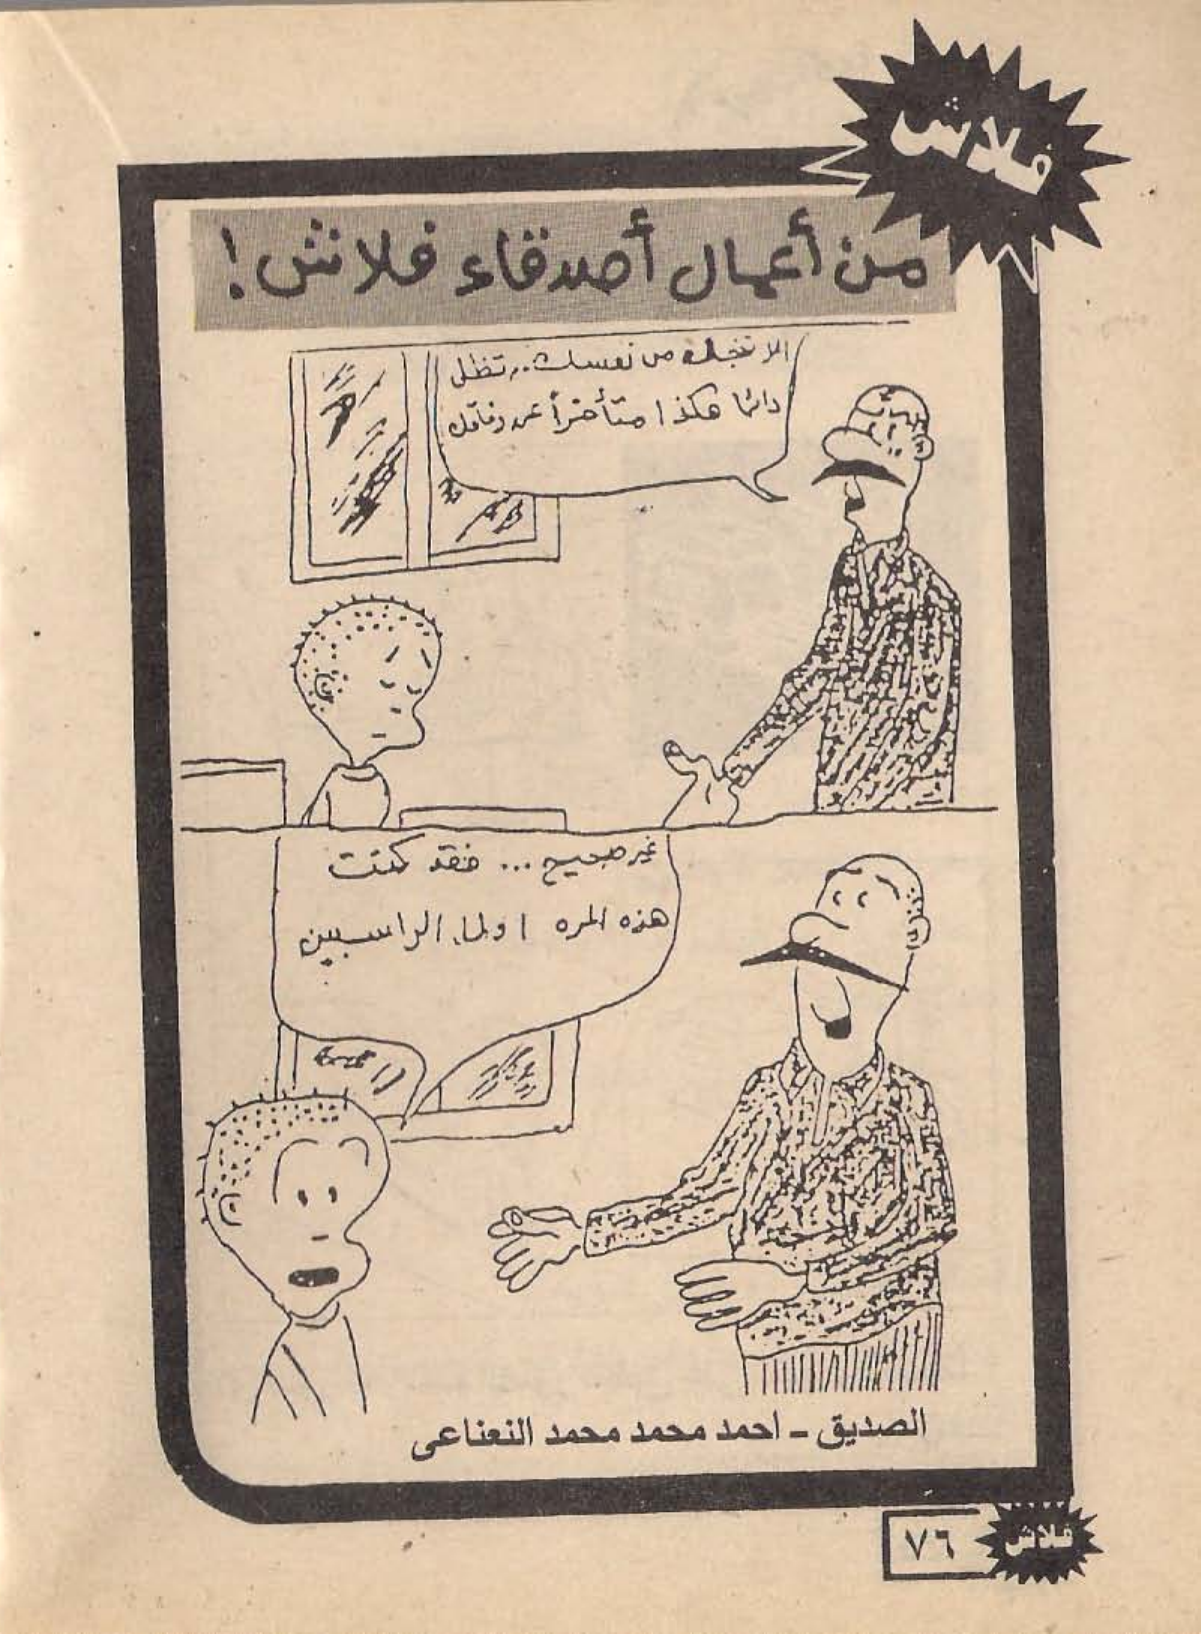 فلاش
من أعمال أصدقاء فلاش!
الا تخجل من نفسك.. تظل
دائما هكذا متأخراً عن رفاقك
غير صحيح ... فقد كنت
هذه المره اول الراسبين
الصديق - احمد محمد محمد النعناعى
فلاش
٧٦